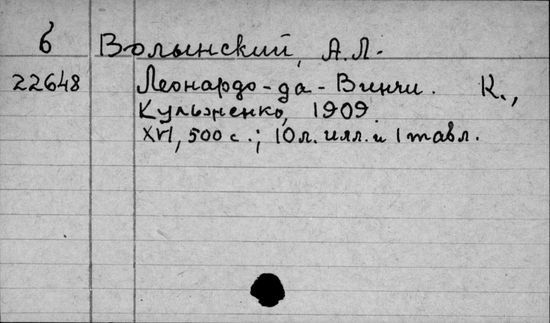 б Волынский, А.Л.
22648 Леонардо-да-Винчи. К.,
Кульженко, 1909.
XVI, 500 с.; 10 л. илл. и 1 табл.